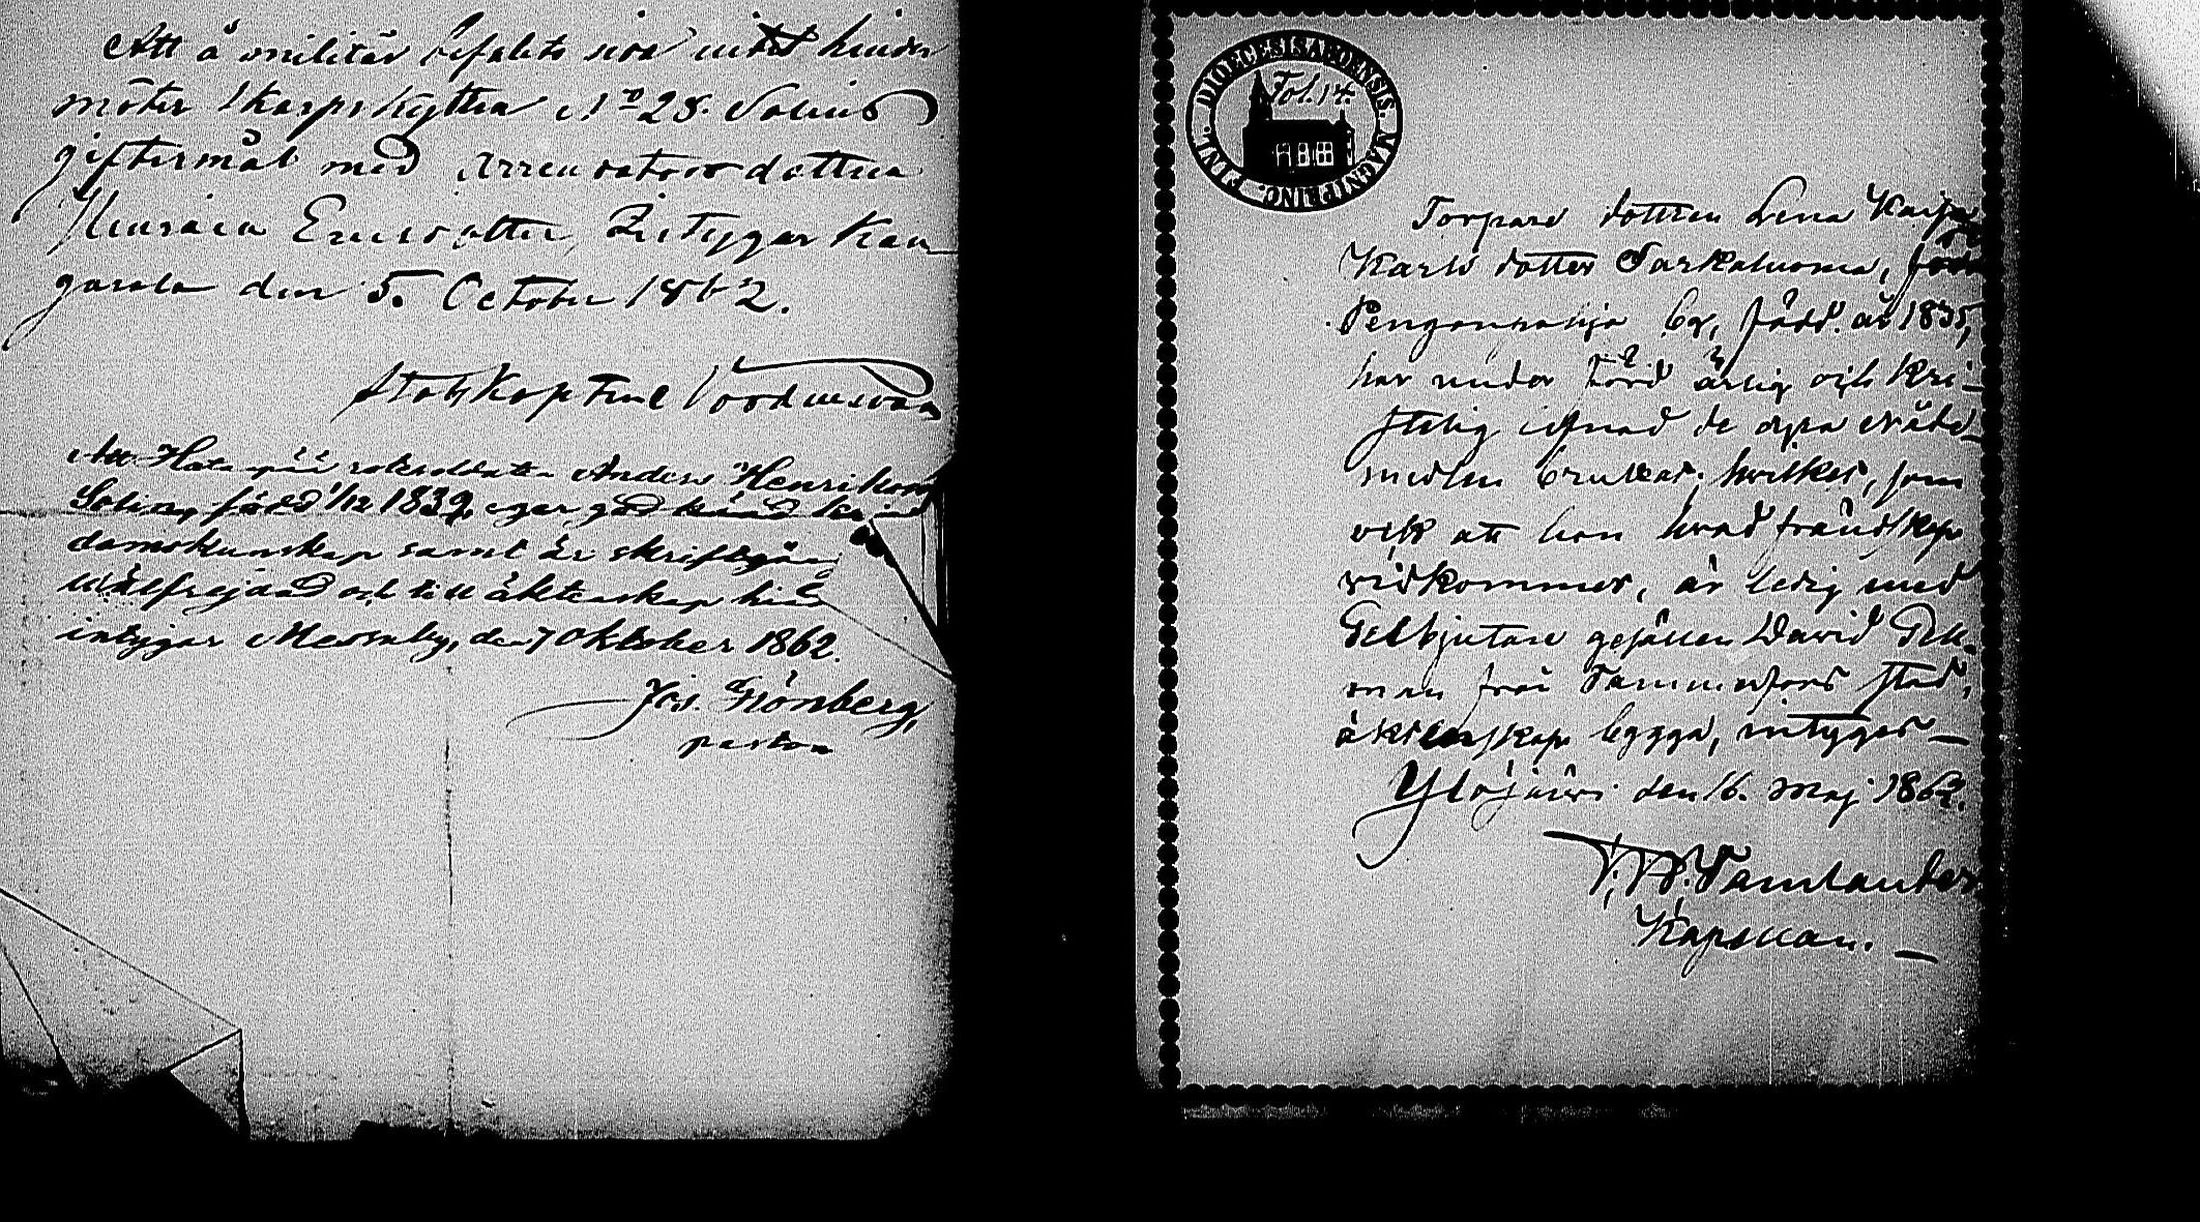 Att å militär befäls sida intet hinder
möter Skarpskytten No 28. Solins
giftermål med Arrendatorsdottren
Ericsdotter, Betygar Kan-
gasala den 5. October 1862.
Stabskapten
Att Hatanpää rotesoldaten Anders Henriksson
Solin, född 1/12 1839, eger god kristen-
domskunskap samt är skriftgången
wälfrejdad och till äktenskap
intygar Messuby, den 7 Oktober 1862.
Joh. Grönberg,
pastor
DIOECESIS ABOENSIS. MAGNI PRINC. FINL.
Fol. 14.
Torpare dottren Lena Kaisa
Karls dotter Sarkaluoma, från
Pengonpohja by, född. år 1835,
har under värd ärlig och Kri-
stelig de dyra Nåde-
medlen brukat; hvilket, som
ock att hon hvad frändskap
vidkommer, är ledig med
Gelbgjutare gesällen David Ek-
man från Tammerfors stad,
äktenskap bygga, intygas —
Ylöjärvi den 16. Maj 1862.
Tamlander
Kapellan. —